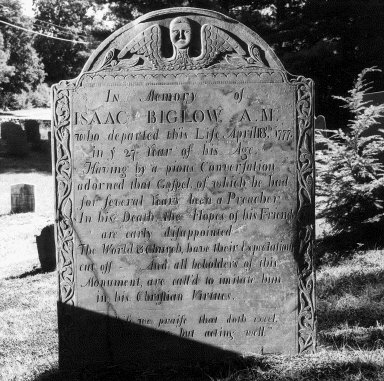 In Memory of
ISAAC BIGLOW A.M.
who departed this Life, April 18th, 1777.
in ye 27 Year of his Age.
Having by a pious Conversation
adorned that Gospel, of which he had
for several Years been a Preacher.
In his Death, the Hopes of his Friends
are early disappointed.
The World & Church, have their Expectation
cut off and all beholders of this
Monument, are call'd to imitate him
in his Christian Virtues.
we praise that doth excel,
but acting well.